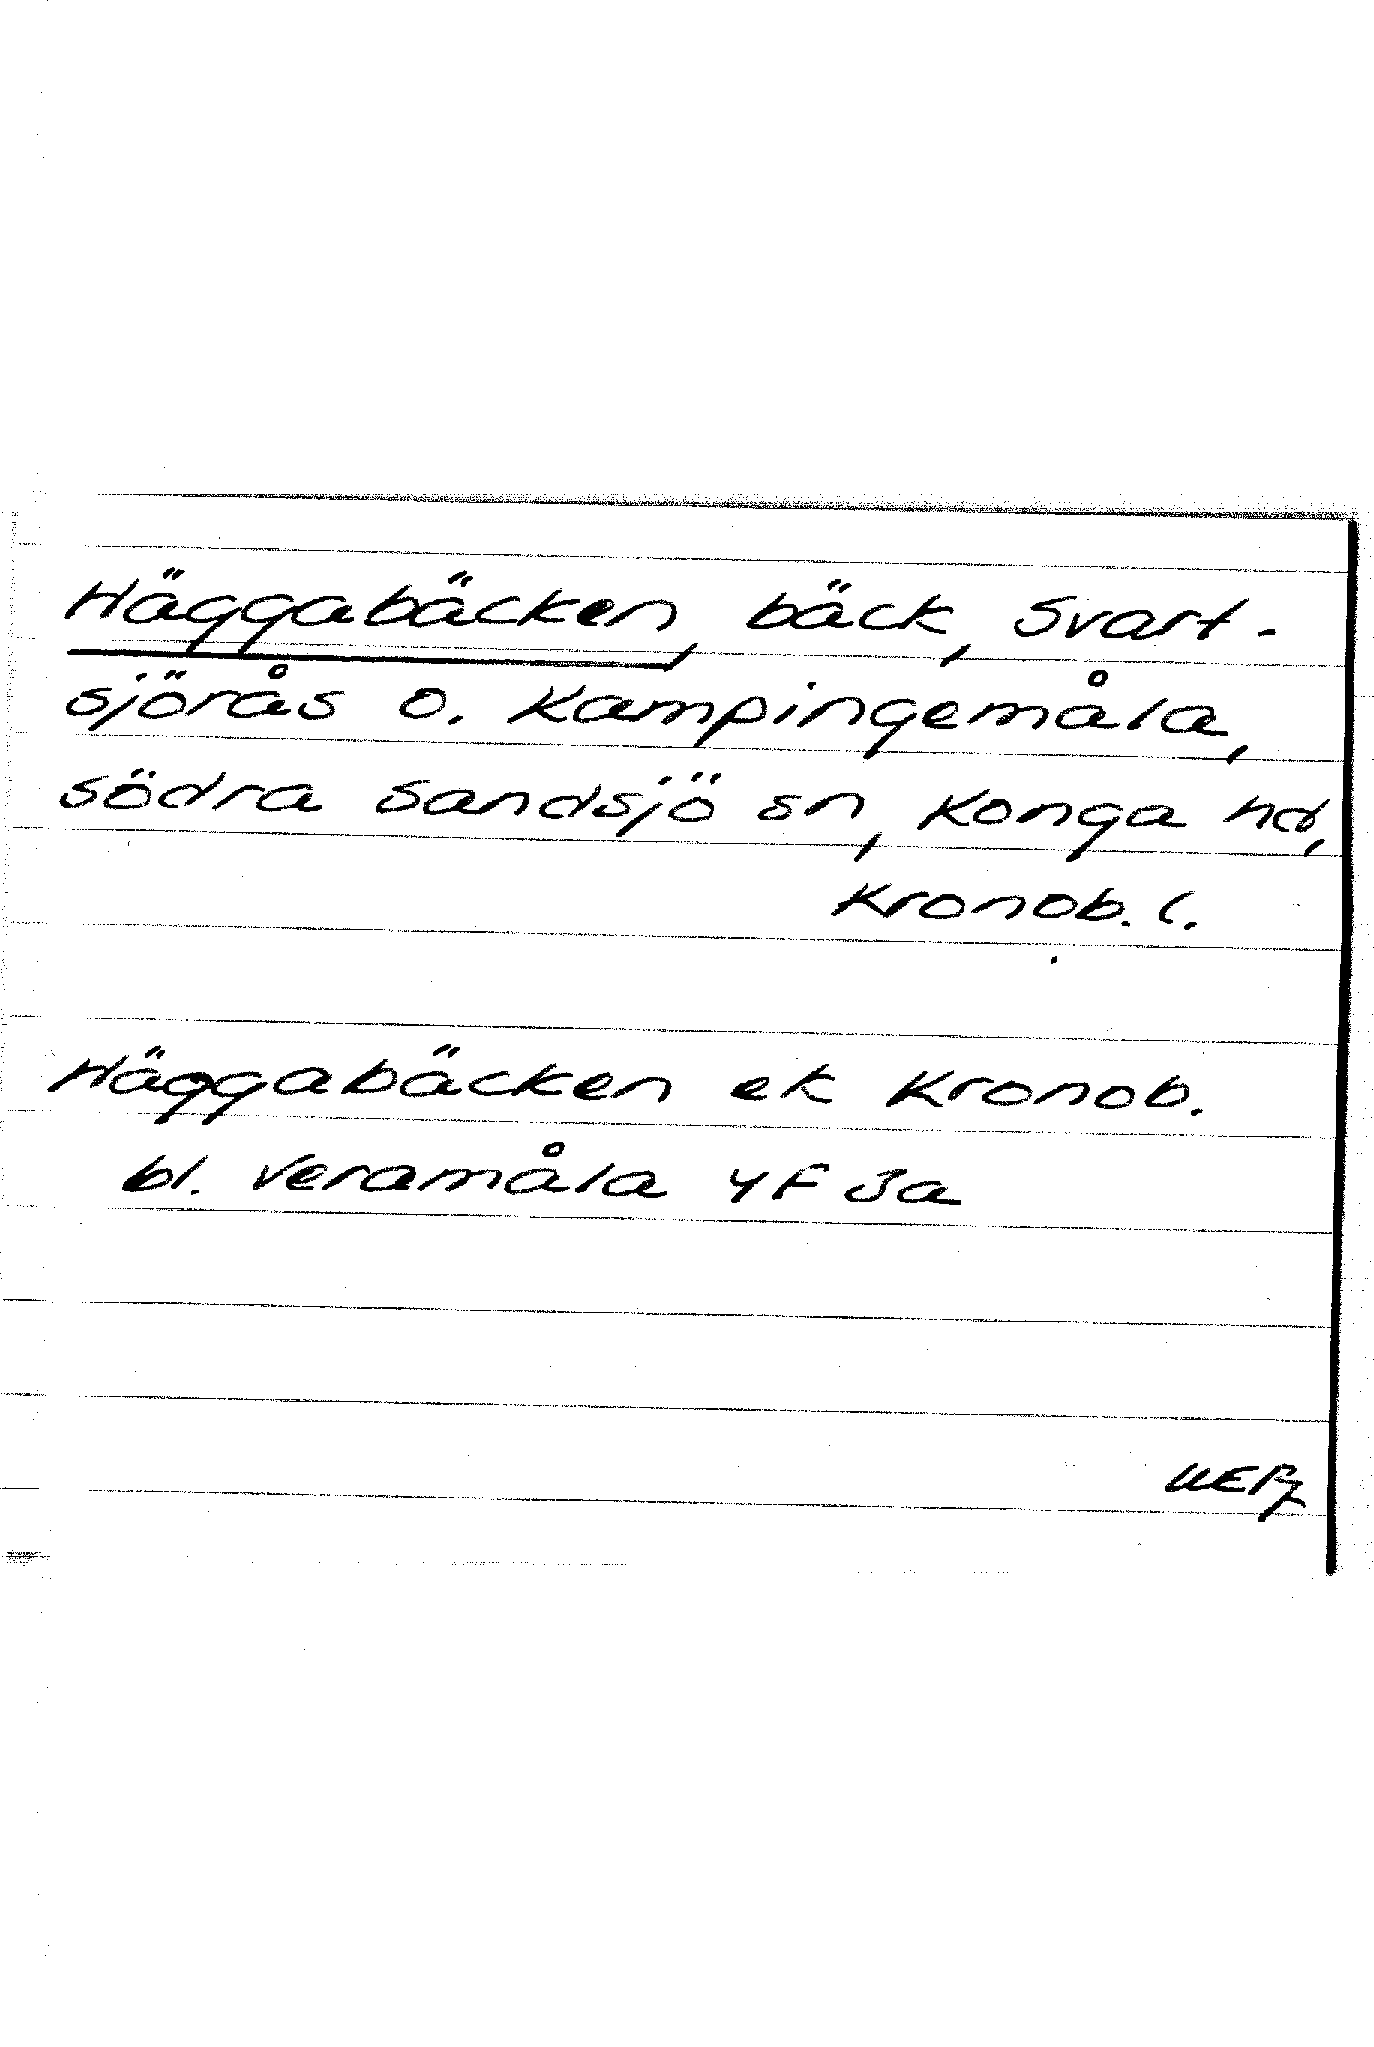 Häggabäcken, bäck, Svart-
sjörås o. Kampingemåla,
Södra Sandsjö sn, Konga hd,
Kronob. l.
Häggabäcken ek Kronob.
bl. Veramåla 4F 3a